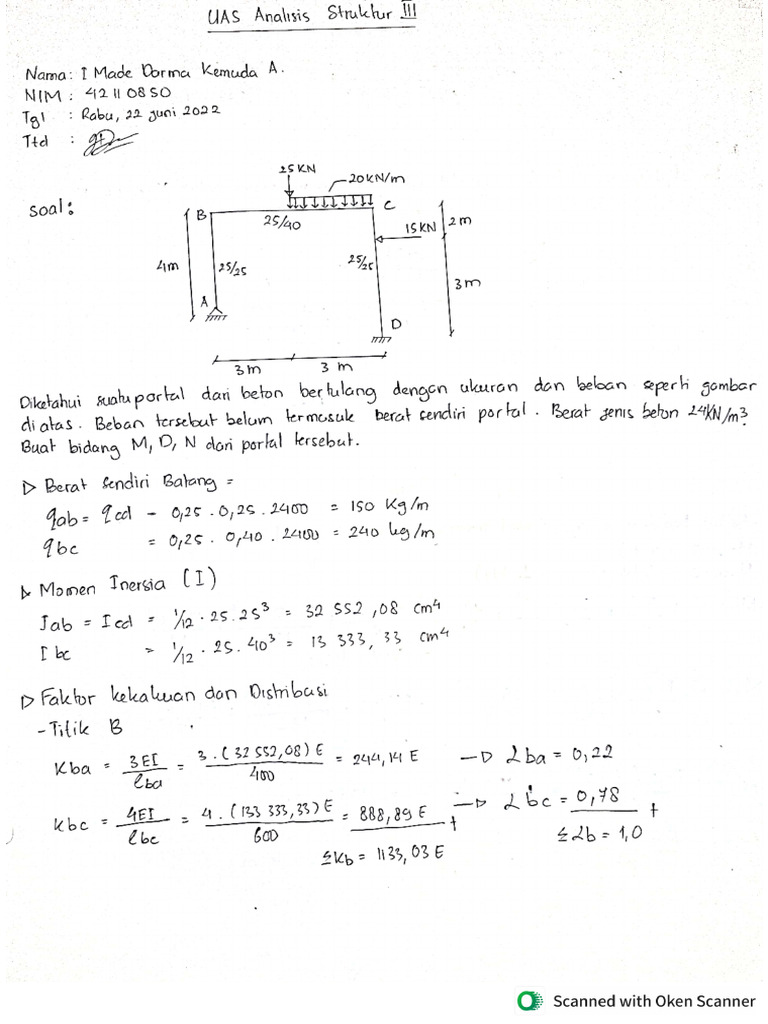 UAS Analisis Struktur III
Nama: I Made Dorma Kemuda A.
NIM : 42110850
Tgl : Rabu, 22 Juni 2022
Ttd :
Soal:
25 KN
20 KN/m
B
C
25/40
15 KN
2 m
4m
25/25
25/25
3 m
A
D
3 m
3 m
Diketahui suatu portal dari beton bertulang dengan ukuran dan beban seperti gambar
di atas. Beban tersebut belum termasuk berat sendiri portal. Berat jenis beton 24KN/m3
Buat bidang M, D, N dari portal tersebut.
▷ Berat Sendiri Batang =
qab = qcd = 0,25 . 0,25 . 2400 = 150 Kg/m
qbc = 0,25 . 0,40 . 2400 = 240 kg/m
▷ Momen Inersia (I)
Iab = Icd = 1/12 . 25. 25³ = 32 552,08 cm⁴
Ibc = 1/12 . 25. 40³ = 13 333,33 cm⁴
▷ Faktor kekakuan dan Distribusi
- Titik B
Kba = 3EI/lba = 3.(32 552,08)E/400 = 244,14 E → αba = 0,22
Kbc = 4EI/lbc = 4.(133 333,33)E/600 = 888,89 E + → αbc = 0,78 +
ΣKb = 1133,03 E Σαb = 1,0
Scanned with Oken Scanner